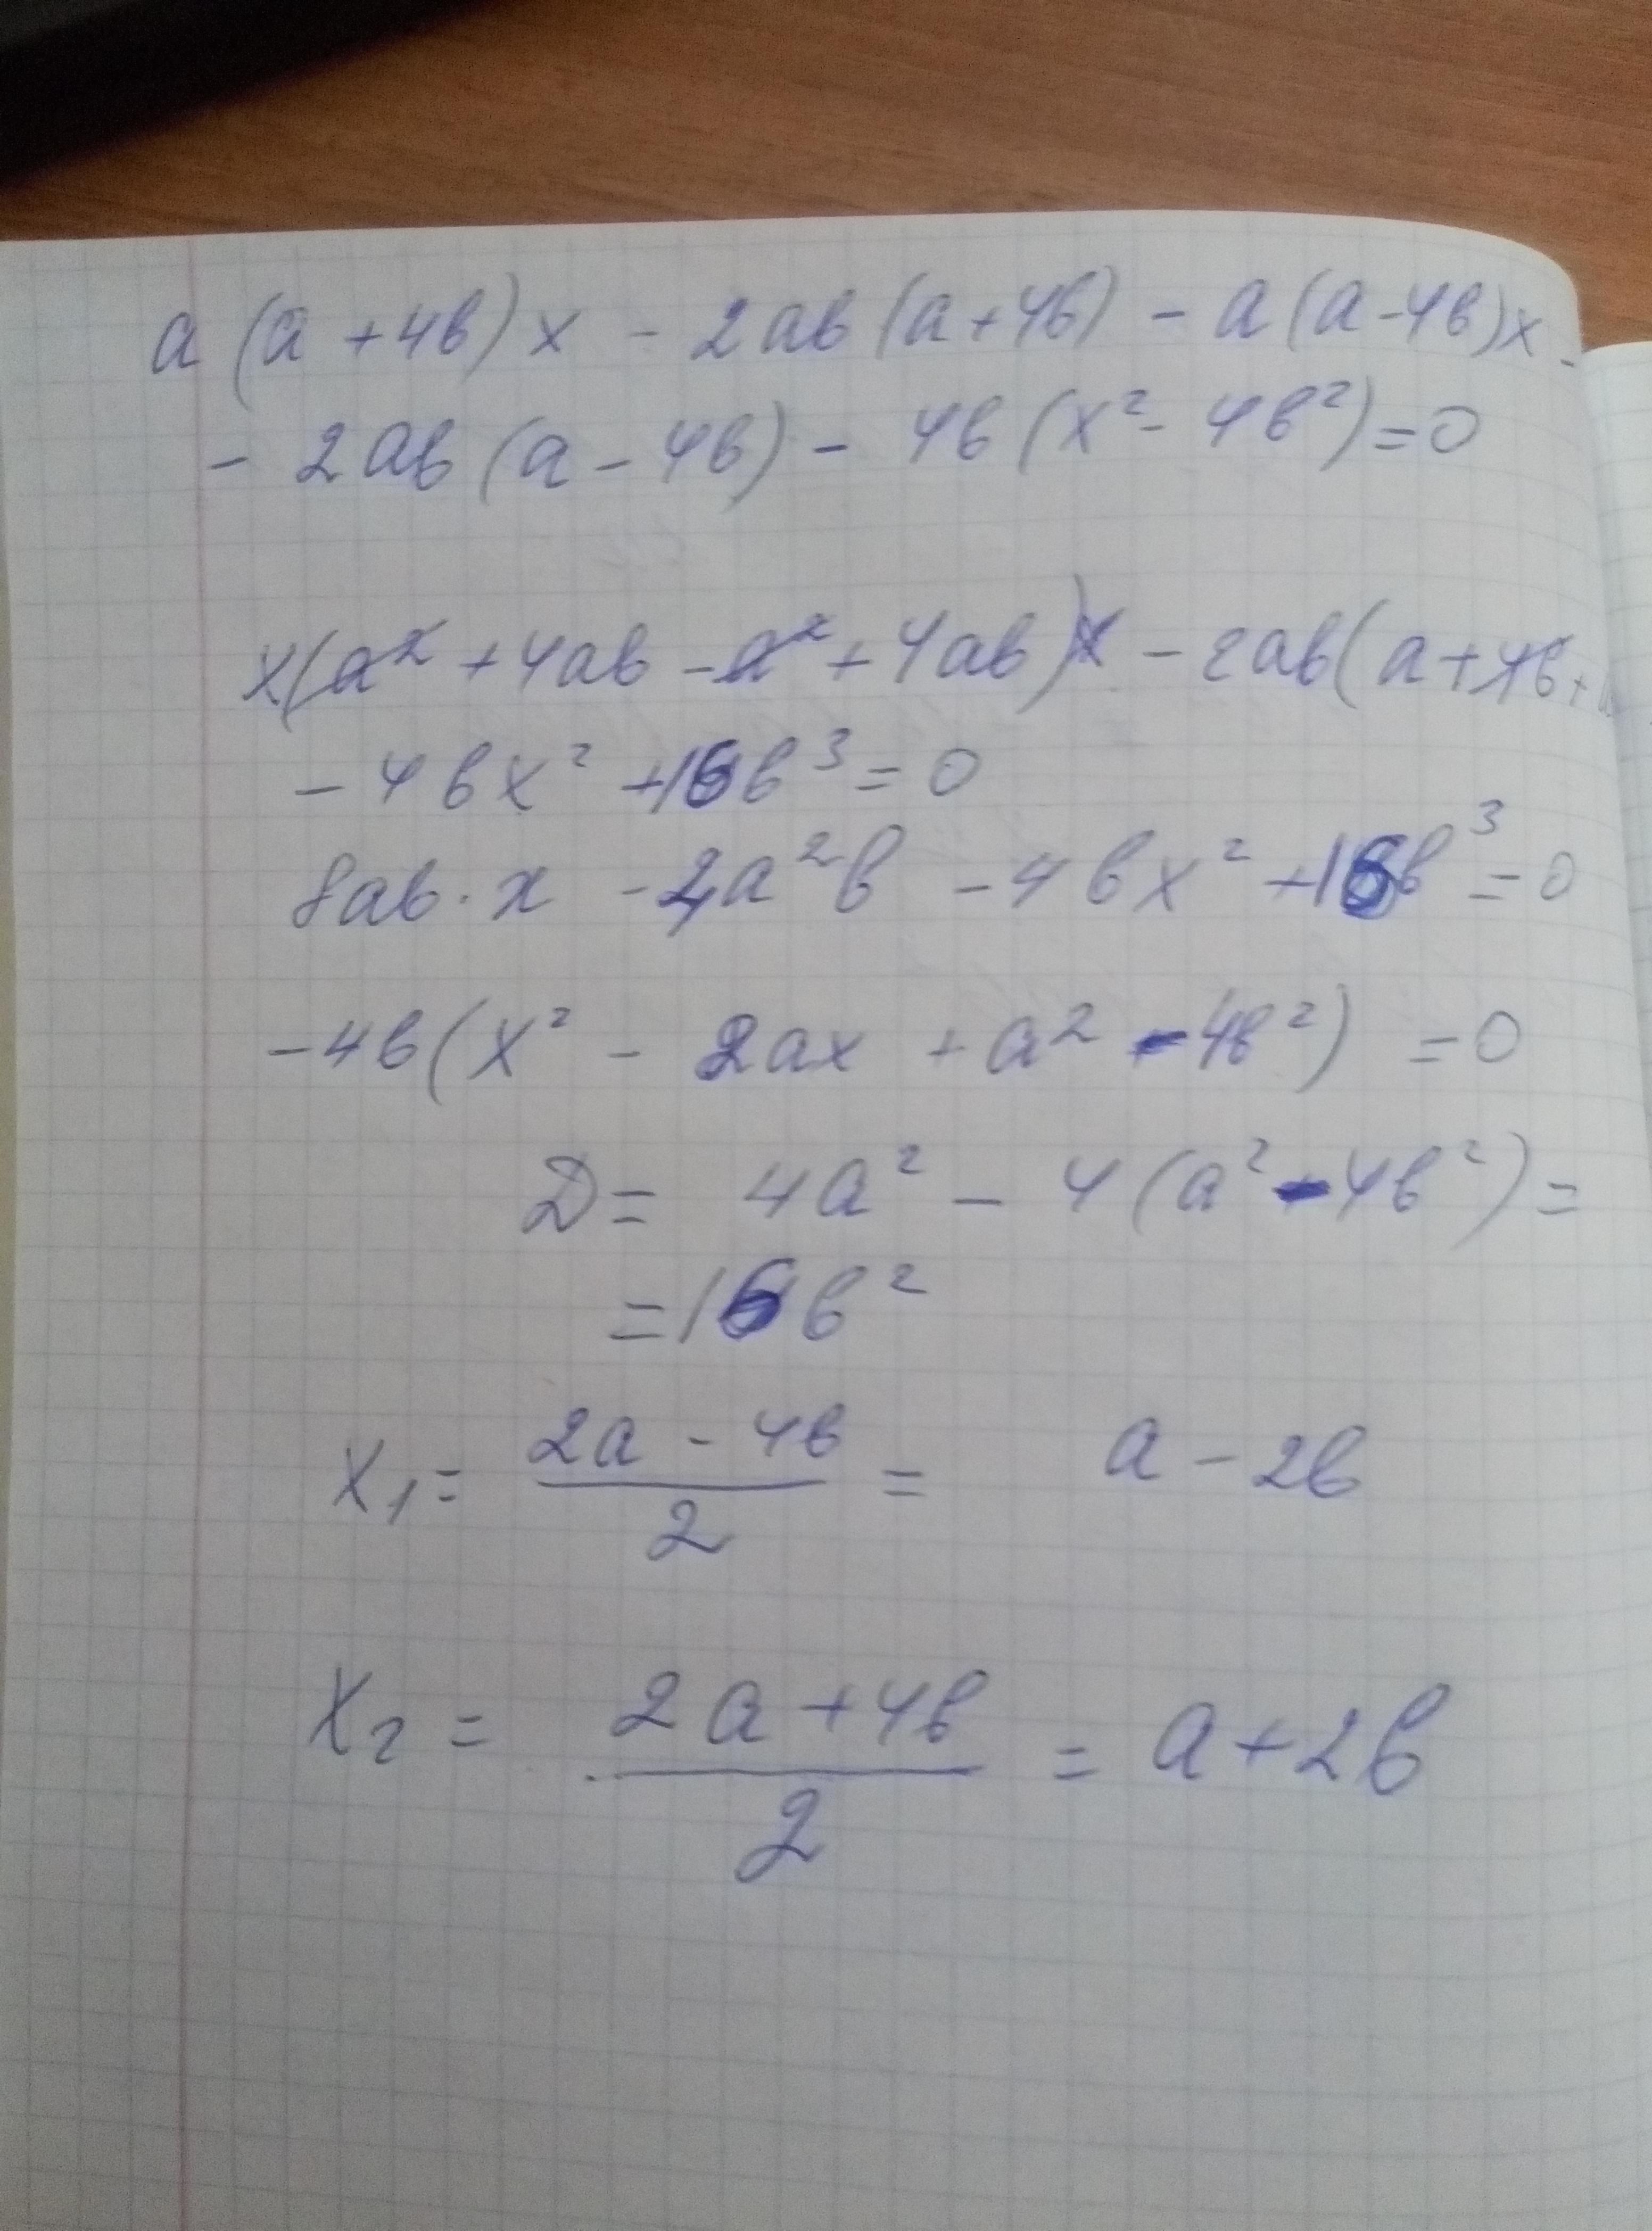 a(a+4в)x - 2aв(a+4в) - a(a-4в)x -
- 2aв(a-4в) - 4в(x²-4в²)=0
x(a²+4aв-a²+4aв) - 2aв(a+4в+
- 4вx² +16в³=0
8aв·x - 4a²в - 4вx² +16в³=0
-4в(x² - 2ax + a² - 4в²) =0
D= 4a² - 4(a²-4в²)=
=16в²
x₁= (2a-4в)/2 = a-2в
x₂= (2a+4в)/2 = a+2в